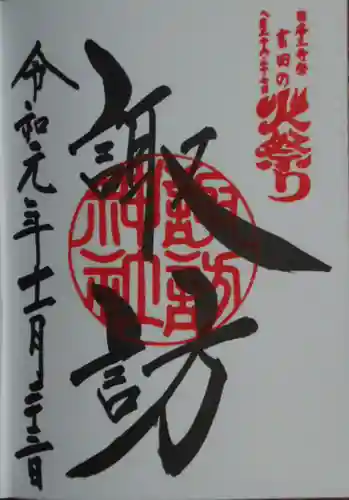 日本三奇祭
吉田の
火祭り
八月二十六・二十七日
諏訪
諏訪
神社
令和元年十一月二十三日